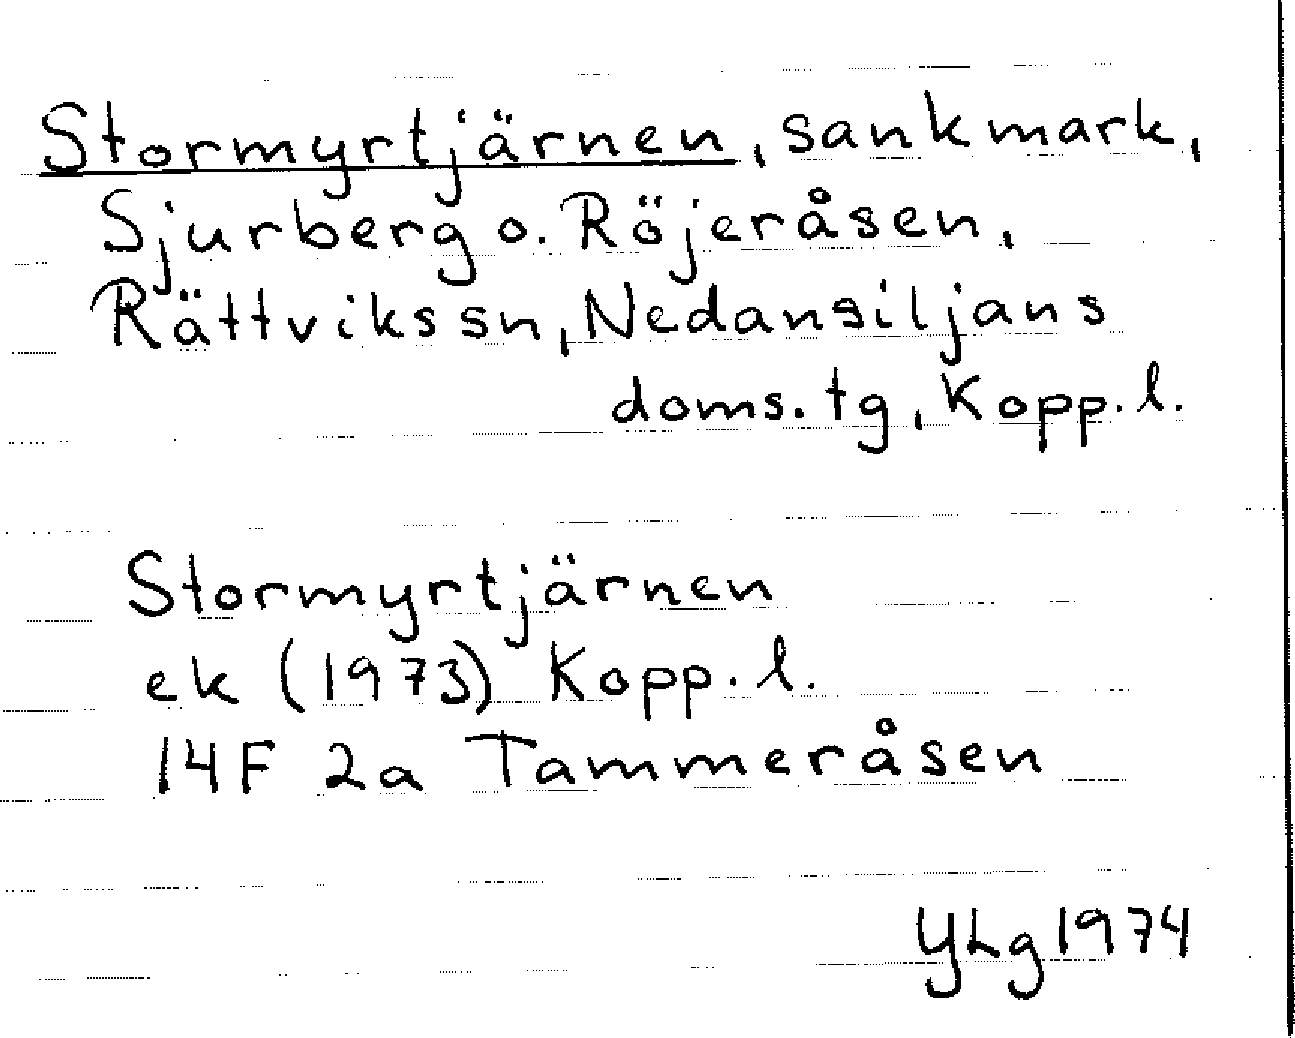 Stormyrtjärnen, sankmark,
Sjurberg o. Röjeråsen,
Rättviks sn, Nedansiljans
doms. tg, Kopp. l.
Stormyrtjärnen
ek (1973) Kopp. l.
14F 2a Tammeråsen
YLg 1974